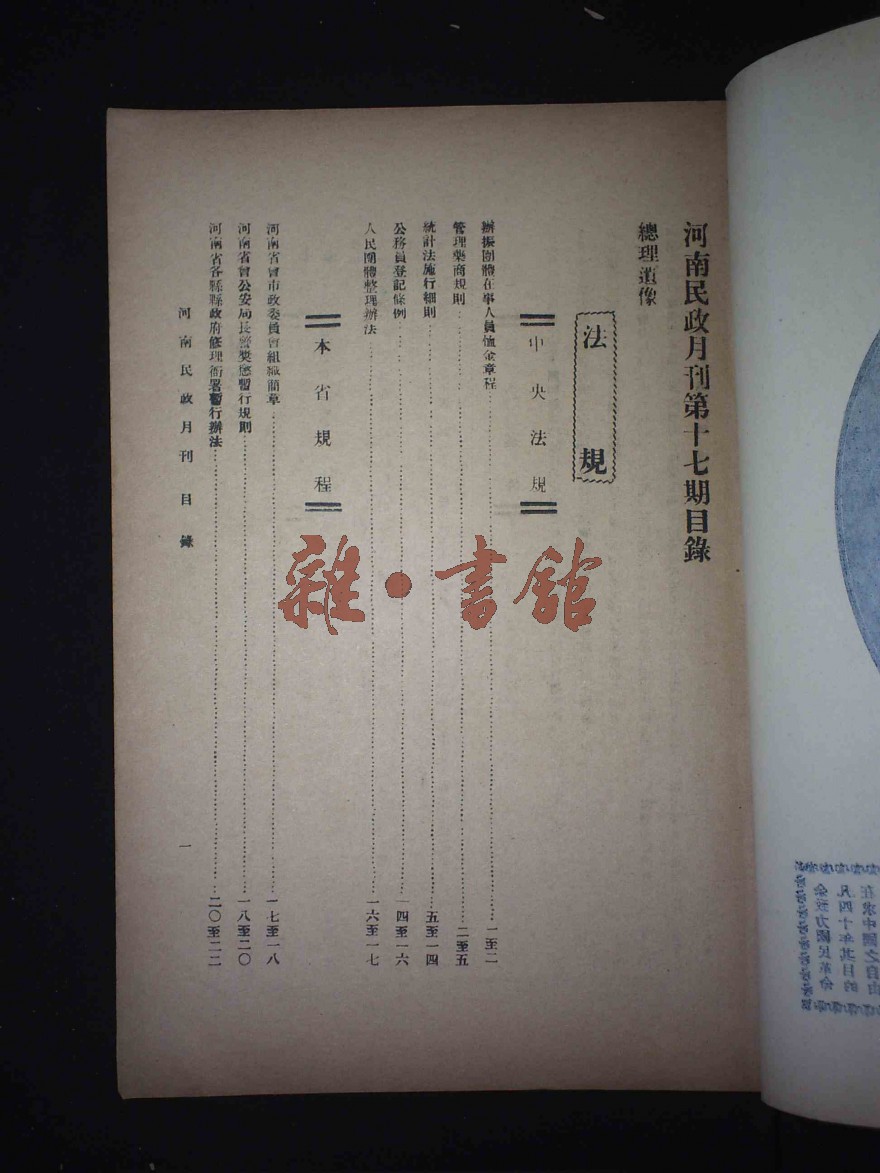 河南民政月刊第十七期目錄
總理遺像
法規
中央法規
辦振團體在事人員恤金章程……一至二
管理藥商規則……二至五
統計法施行細則……五至一四
公務員登記條例……一四至一六
人民團體整理辦法……一六至一七
本省規程
河南省會市政委員會組織簡章……一七至一八
河南省會公安局長警獎懲暫行規則……一八至二〇
河南省各縣縣政府修理衙署暫行辦法……二〇至二二
河南民政月刊 目錄
一
雜·書舘
余致力國民革命
凡四十年其目的
在求中國之自由